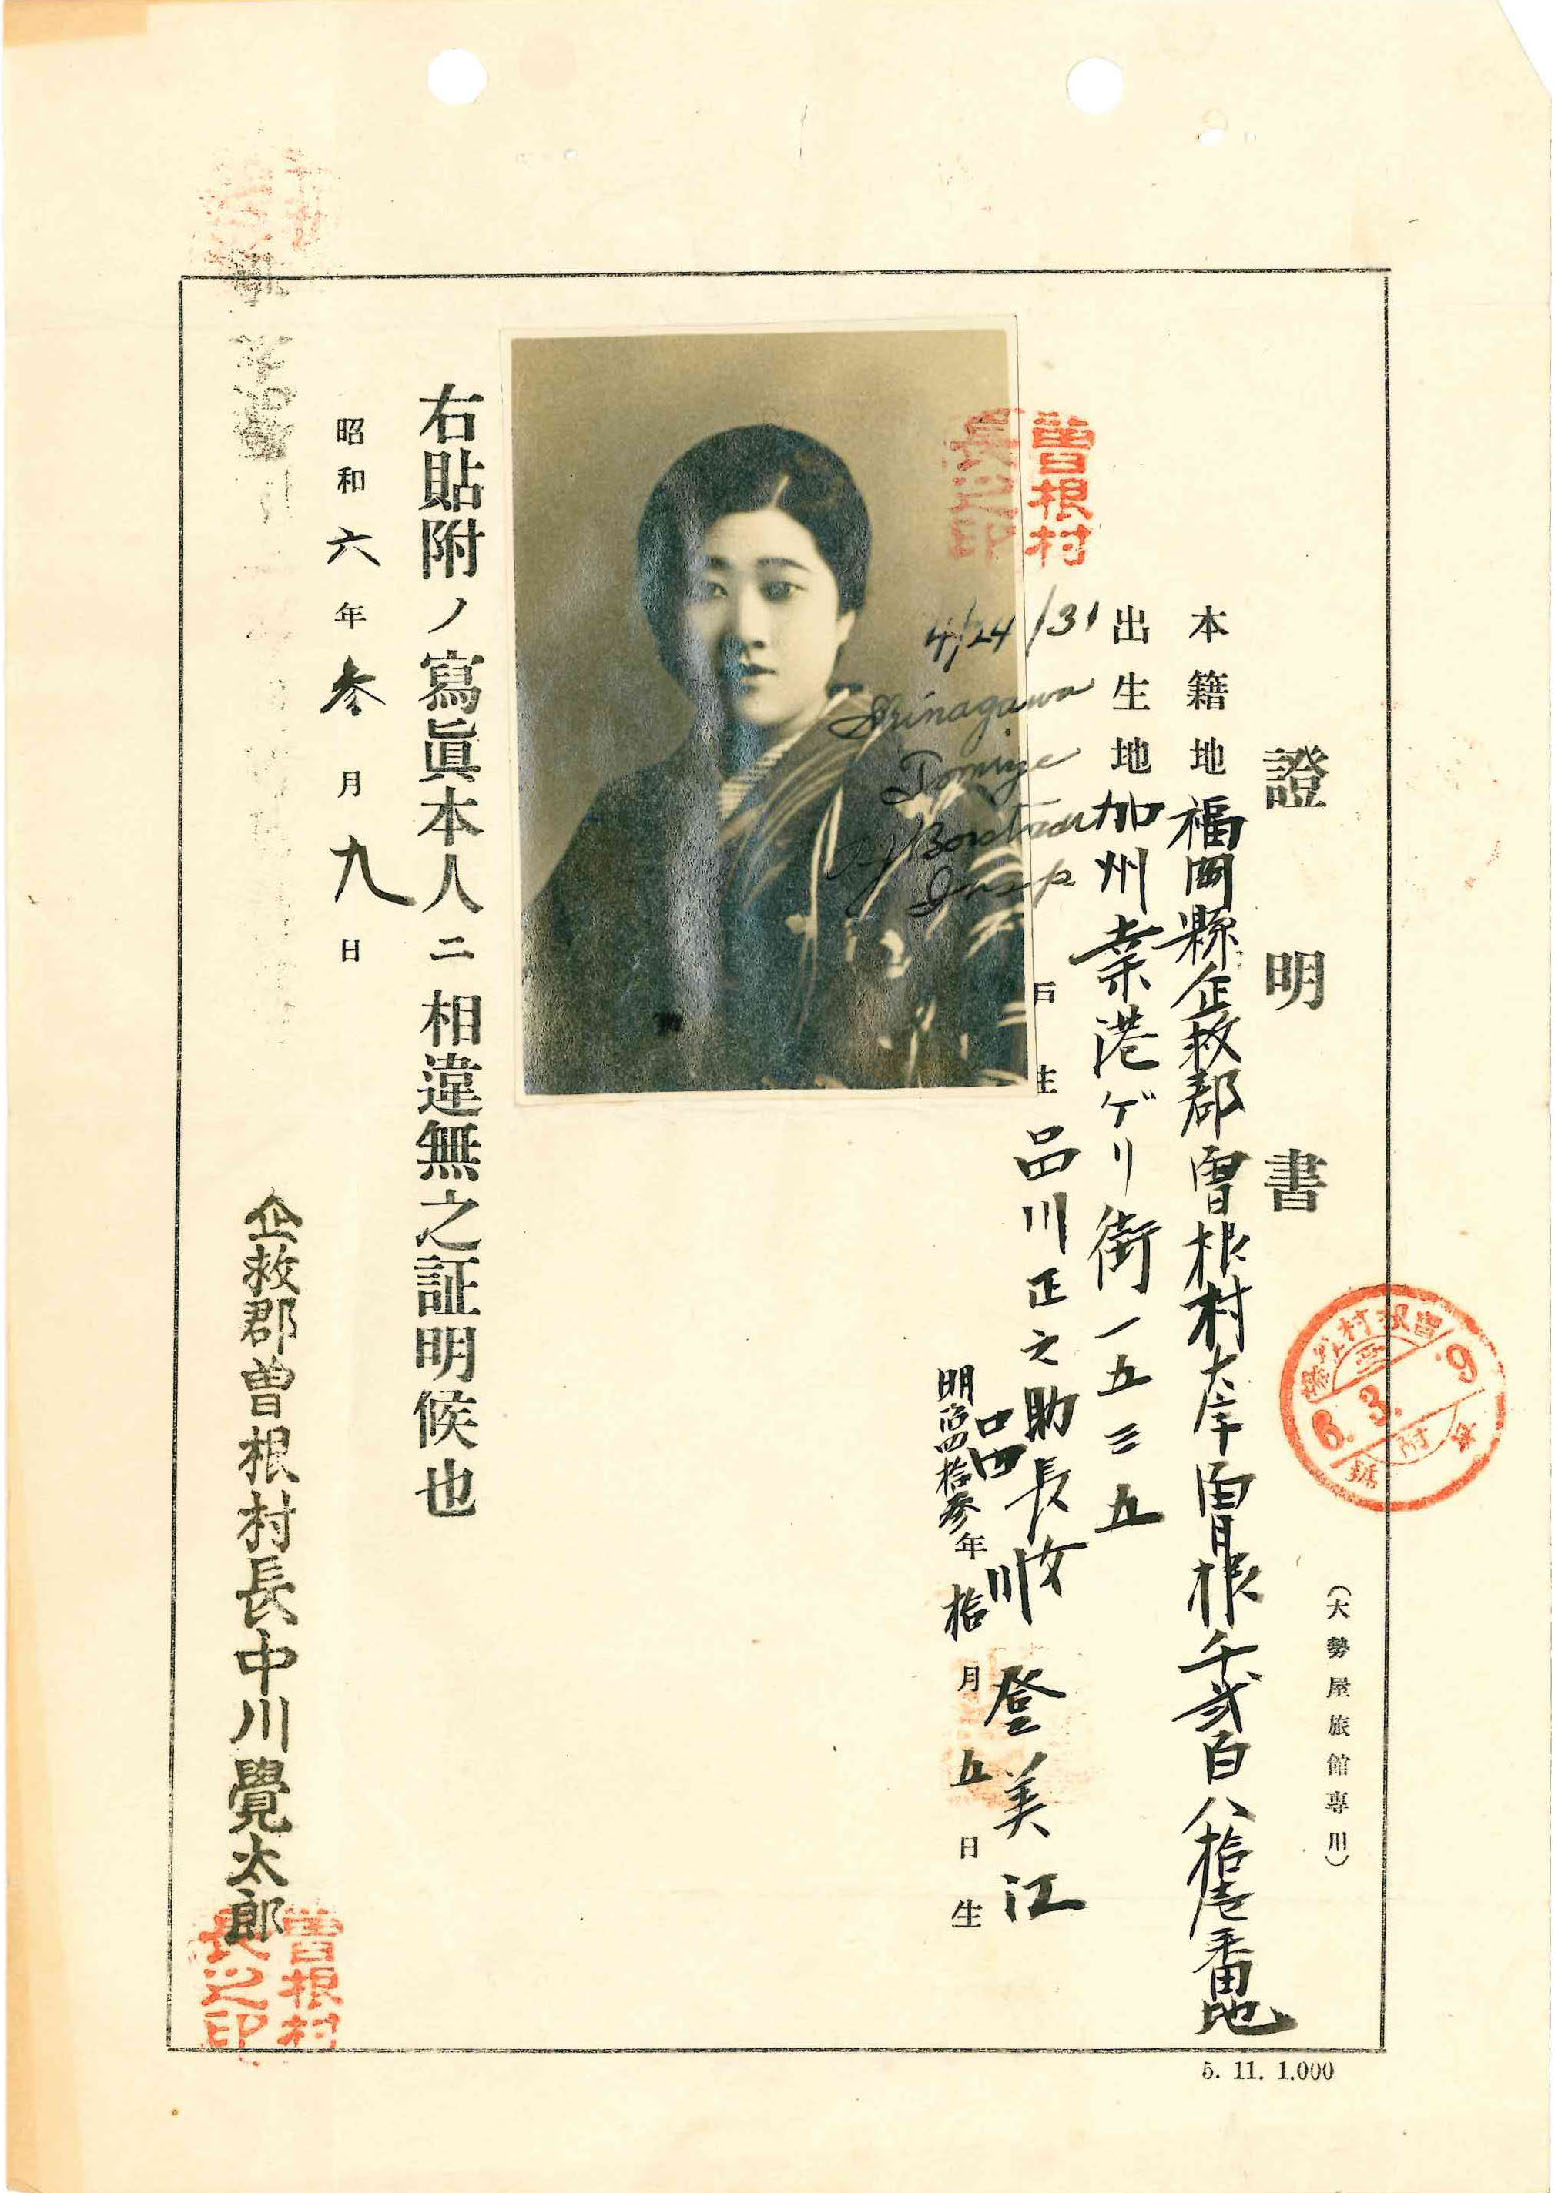 證明書
（大勢屋旅館專用）
本籍地 福岡縣企救郡曽根村大字曽根千弐百八拾壱番地
出生地 加州桒港ゲリ街一五三五
戸主 品川正之助長女
品川登美江
明治四拾参年拾月五日生
右貼附ノ寫眞本人ニ相違無之証明候也
昭和六年参月九日
企救郡曽根村長中川覺太郎
曽根村
長之印
曽根村
長之印
4/24/31
Shinagawa
Tomiye
Insp
6. 3. 9
5. 11. 1.000